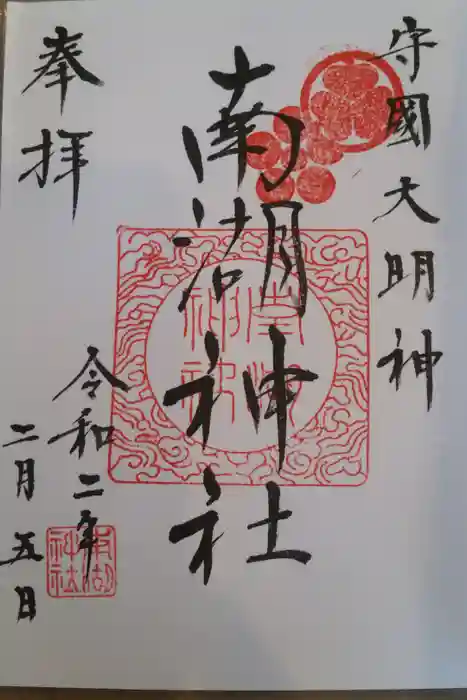 守國大明神
南湖神社
奉拝
令和二年
二月五日
南湖
神社
南湖
神社